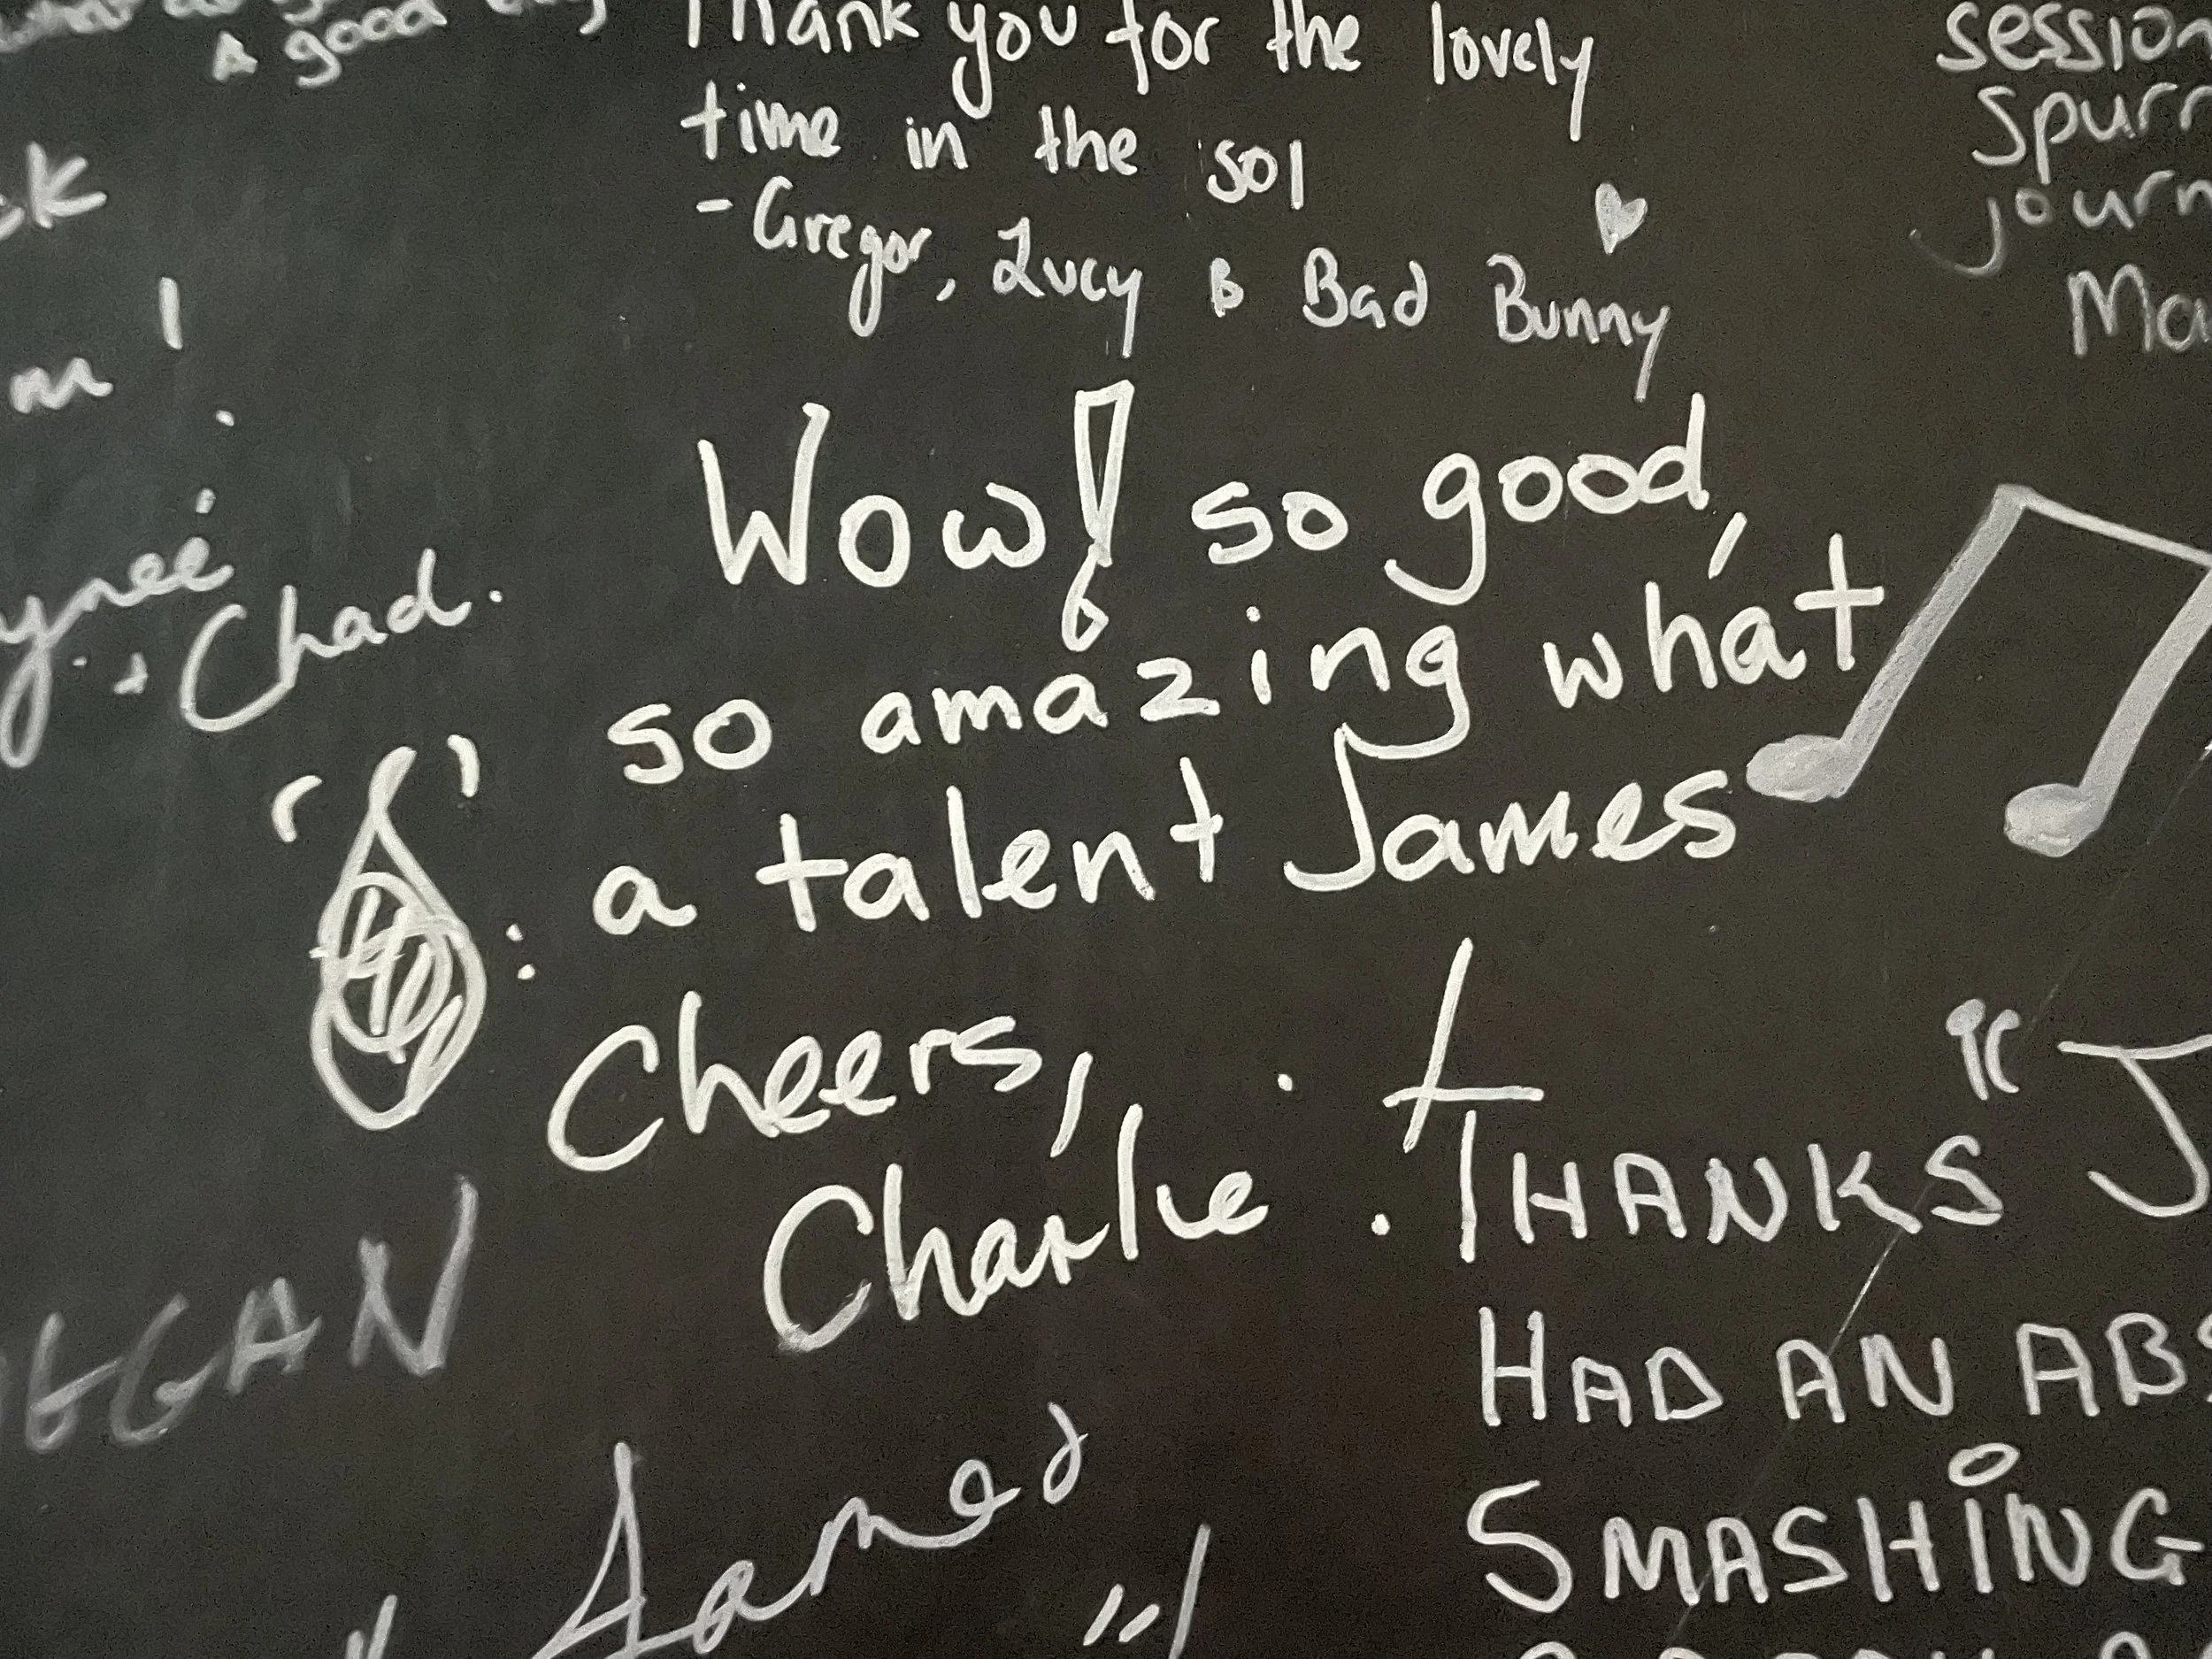 A good
Thank you for the lovely
time in the sol
- Gregor, Lucy & Bad Bunny
session
Spurr
journ
Ma
ck
m !
ynee
+ Chad.
Wow! so good,
so amazing what
a talent James
Cheers,
Charlie
EGAN
THANKS "J
HAD AN ABS
SMASHING
James